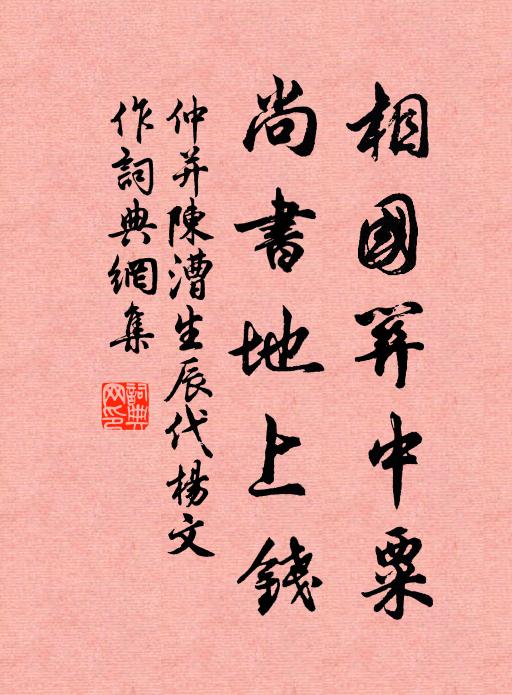 相國關中粟
尚書地上錢
仲并陳漕生辰代楊文
作詞典網集
詞典
网印